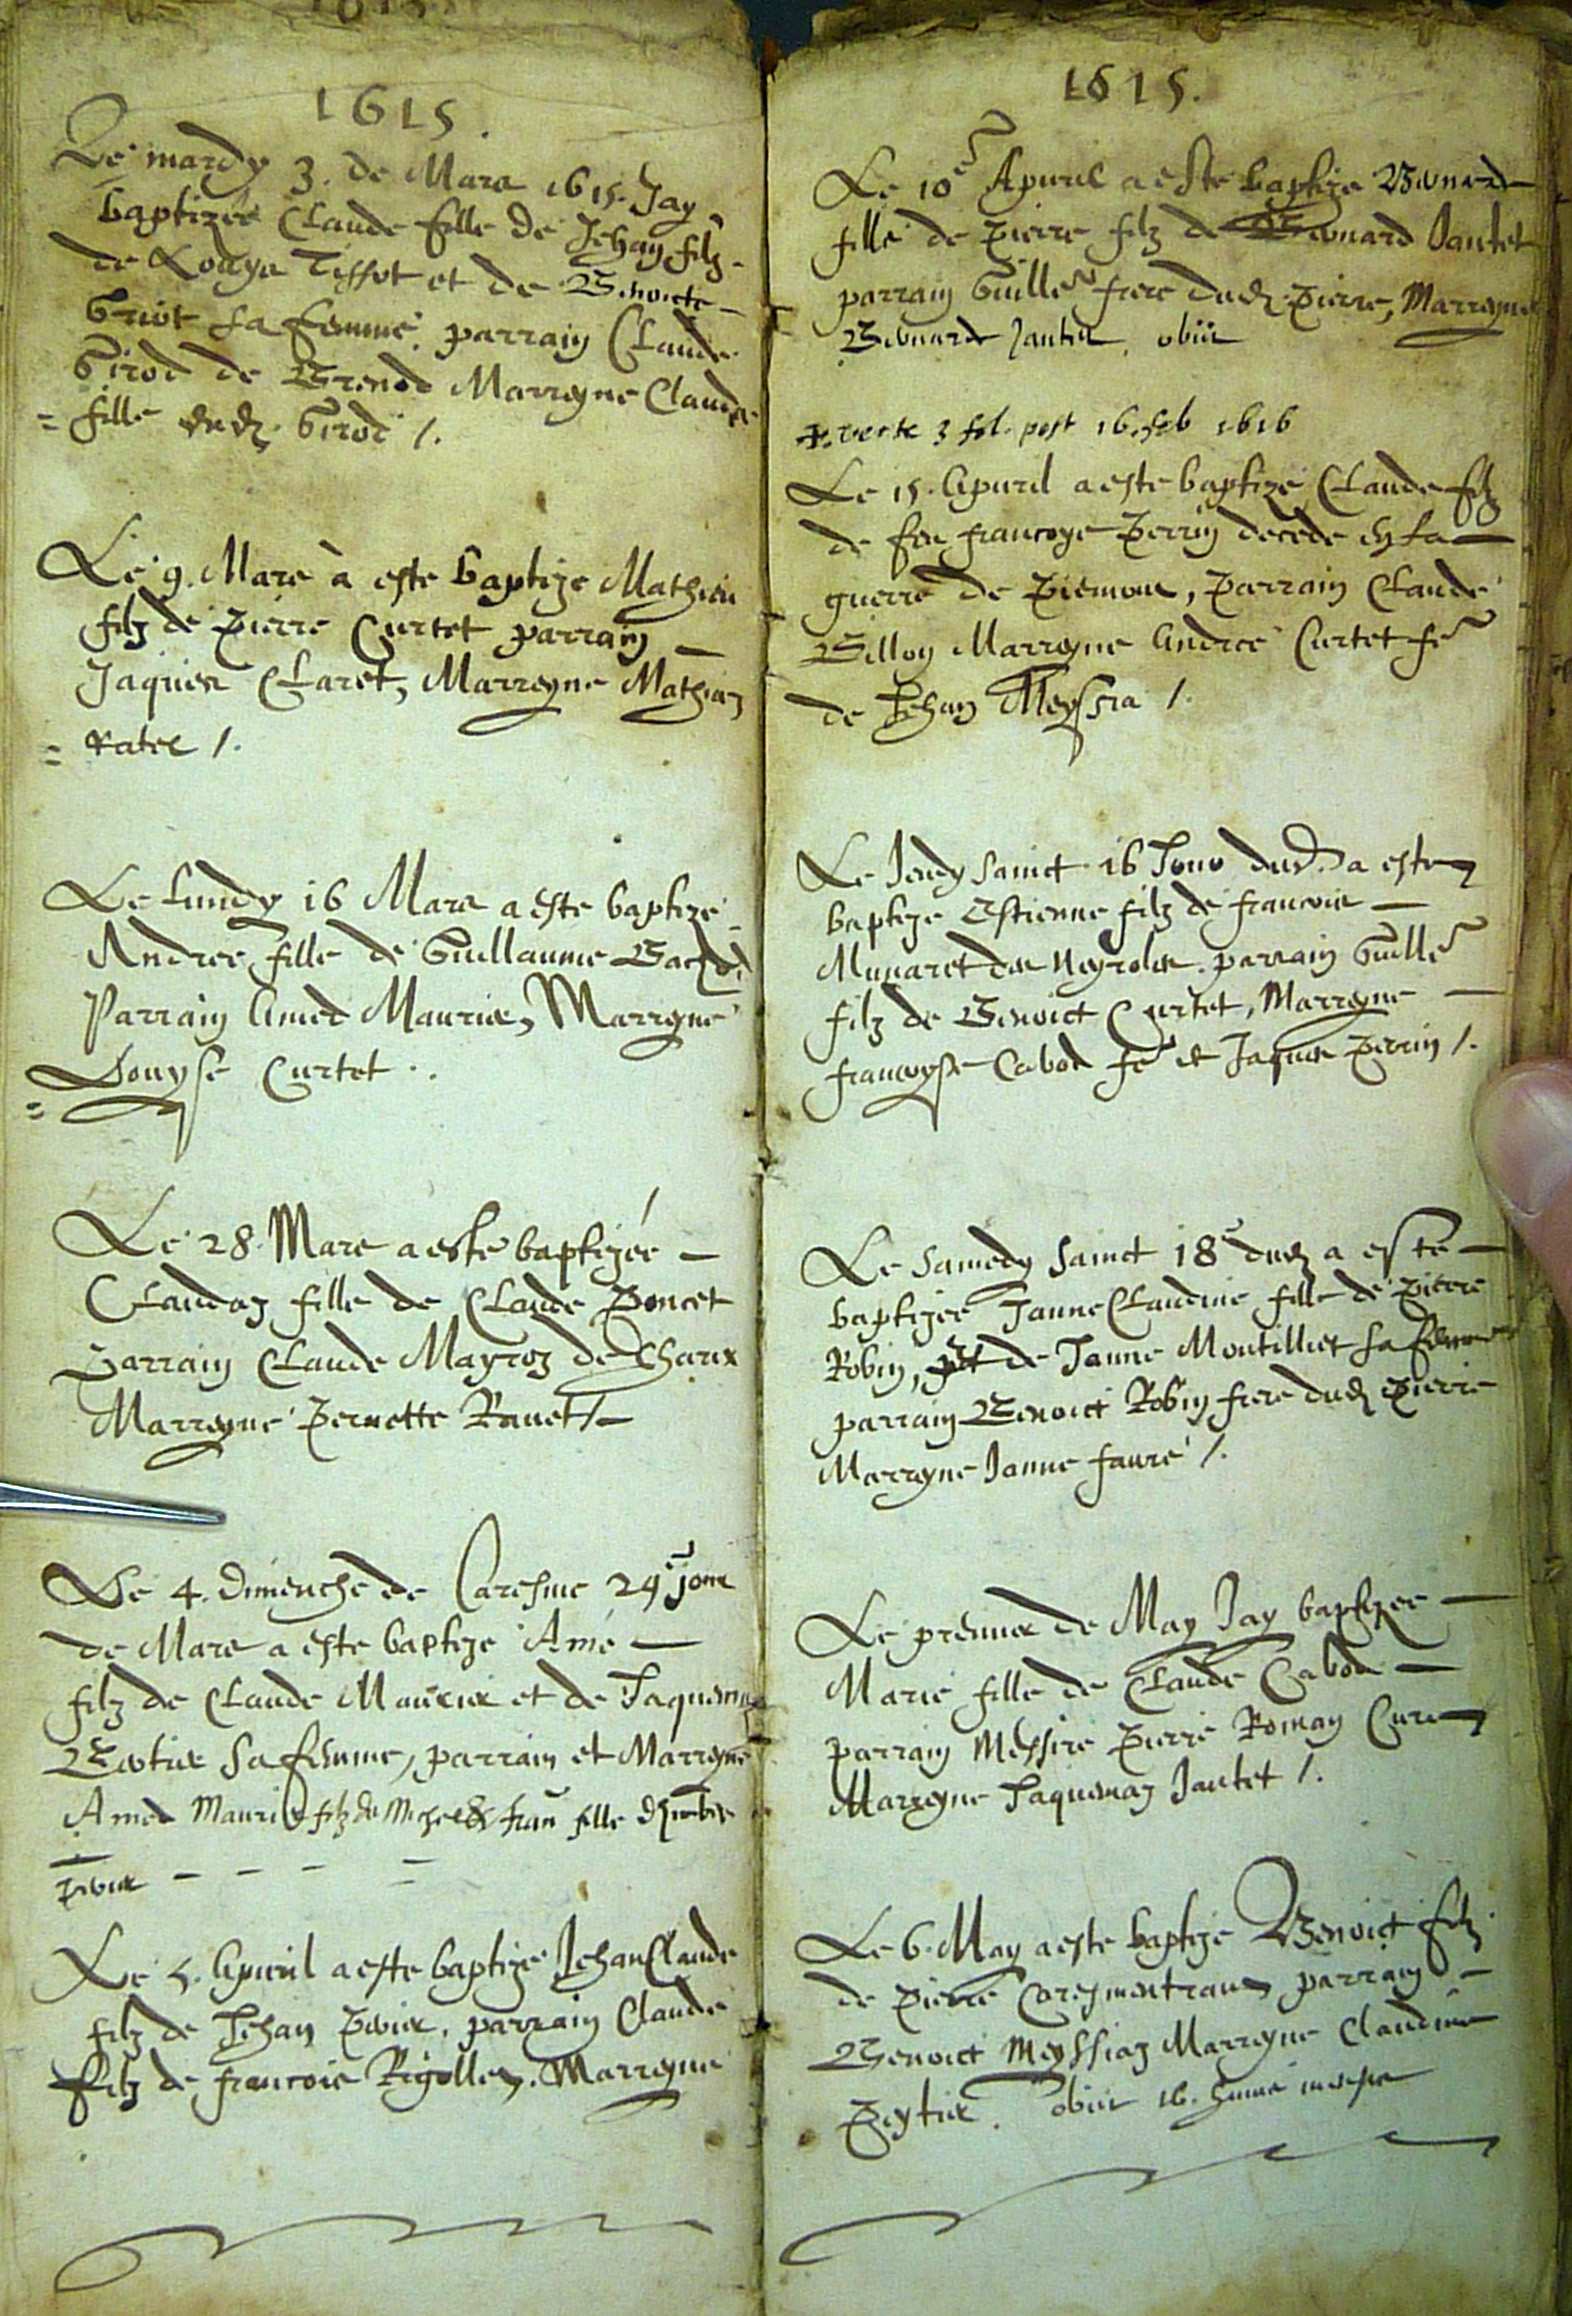 1615.
Le mardy 3. de Mars 1615. Jay
baptizée Claude fille de Jehan filz
de Loays Tissot et de Benoicte
Griot sa femme, parrain Claude
Girod de Brenod Marreyne Claude
fille dud. Girod /.
Le 9. Mars à este baptize Mathieu
filz de pierre Curtet parrain
Jaques Claret, Marreyne Mathiaz
Le lundy 16 Mars a este baptize
Andree fille de Guillaume
Parrain Amed Maurier, Marreyne
Donyse Curtet .
Le 28. Mars a este baptizée
Claudaz fille de Claude Poncet
Parrain Claude Mayroz de
Marreyne Pernette Ravet /.
Le 4. dimenche de Caresme 29 jour
de Mars a este baptize Amé
filz de Claude Maurier et de
sa femme, parrain et Marreyne
Amed Maurier filz de Michel & fille
Le 5. Apvril a este baptize Jehan Claude
filz de Jehan parrain Claude
filz de francois Marreyne
1615.
Le 10e Apvril a este baptize Bernarde
fille de pierre filz de Bernard Jantet
parrain Guille frere dud. pierre, Marreyne
Bernarde Jantet, obiit
verte 3 fol. post 16. feb 1616
Le 15. Apvril a este baptize Claude filz
de feu francoys Perrin decede en la
guerre de piemont, Parrain Claude
Billon Marreyne Andree Curtet fe
de Jehan Meyssia /.
Le Jeudy sainct 16 Jour dud. a este
baptize Estienne filz de francois
Munaret de Neyrolles. parrain Guille
filz de Benoict Curtet, Marreyne
francoyse Cabod fe de Jaques Perrin /.
Le Samedy sainct 18e dud. a este
baptizée Janne Claudine fille de pierre
Robin, et de Janne Montillet sa femme
parrain Benoict Robin frere dud. pierre
Marreyne Janne faure /.
Le premier de May Jay baptizee
Marie fille de Claude Cabod
parrain Messire Pierre Roman Cure
Marreyne Jaquemaz Jantet /.
Le 6. May a este baptize Benoict filz
de pierre Caresmentrant parrain
Benoict Meyssiaz Marreyne Claudine
obiit 16.